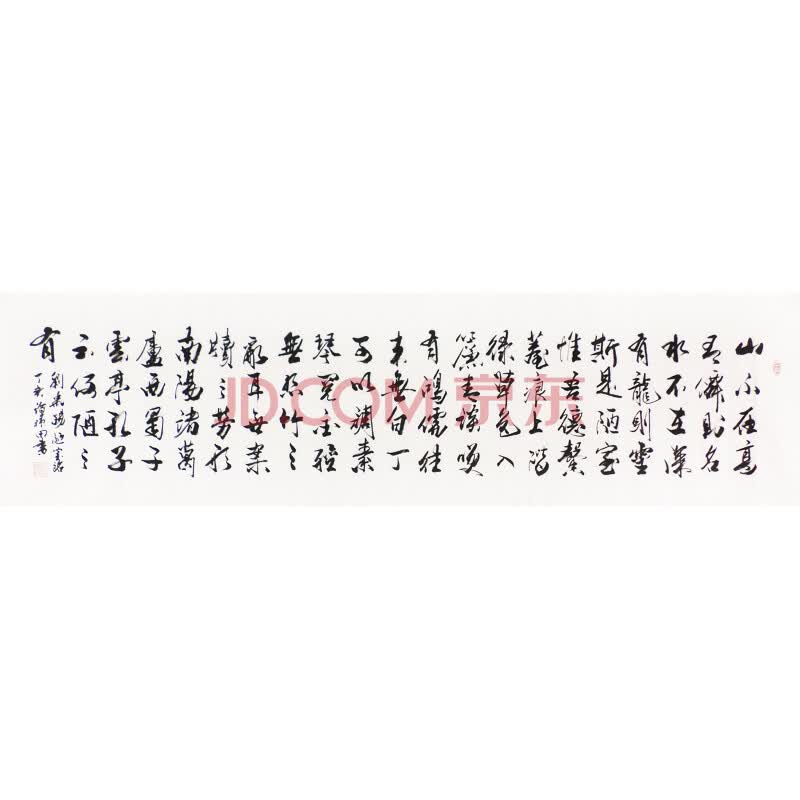 山不在高
有僊則名
水不在深
有龍則靈
斯是陋室
惟吾德馨
苔痕上階
綠草色入
簾青談笑
有鴻儒往
來無白丁
可以調素
琴閱金經
無絲竹之
亂耳無案
牘之勞形
南陽諸葛
廬西蜀子
雲亭孔子
云何陋之
有
劉禹錫陋室銘
丁亥 書
JD.COM 京东